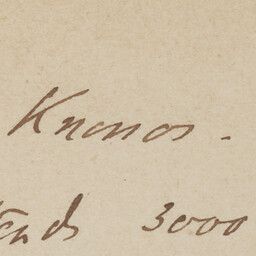 Knossos.
ends 3000